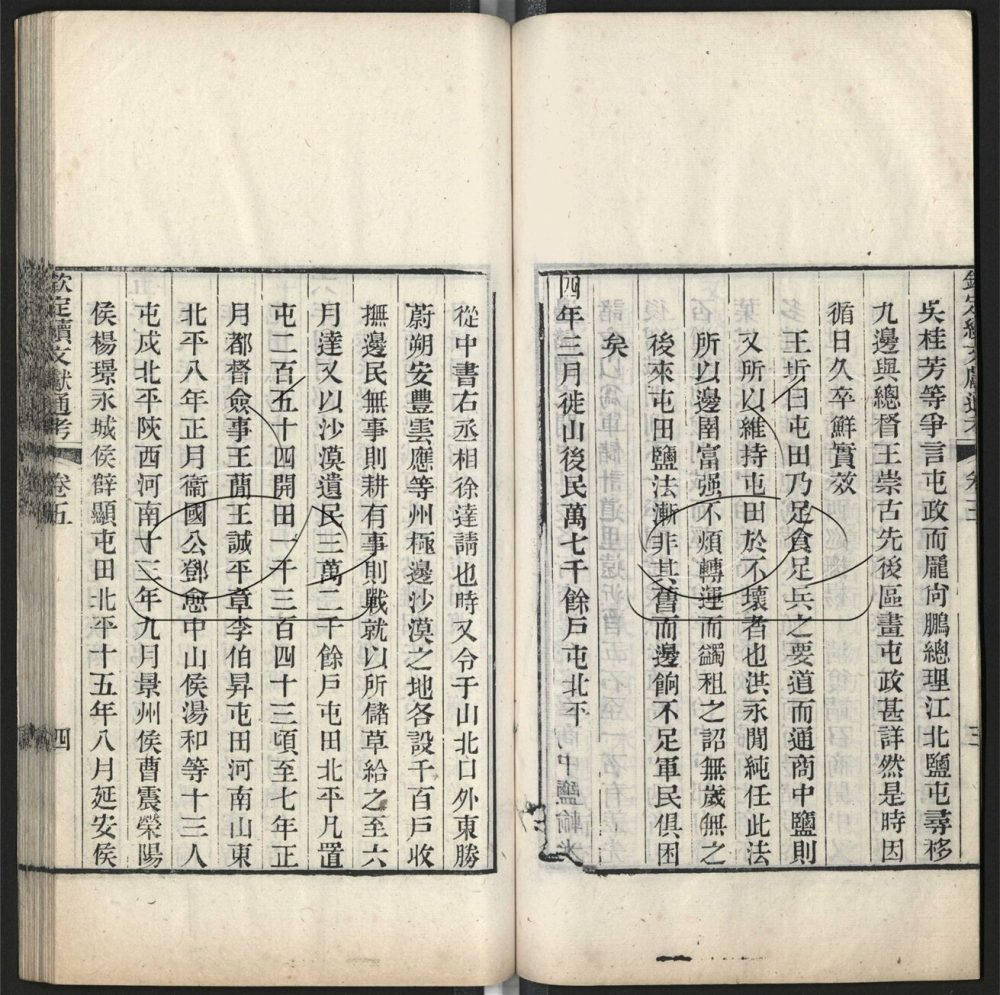 吳桂芳等爭言屯政而龎尙鵬總理江北鹽屯尋移
九邊與總督王崇古先後區畫屯政甚詳然是時因
循日久卒鮮實效
王圻曰屯田乃足食足兵之要道而通商中鹽則
又所以維持屯田於不壞者也洪永閒純任此法
所以邊圉富强不煩轉運而蠲租之詔無歲無之
後來屯田鹽法漸非其舊而邊餉不足軍民俱困
矣
四年三月徙山後民萬七千餘戸屯北平
從中書右丞相徐達請也時又令于山北口外東勝
蔚朔安豐雲應等州極邊沙漠之地各設千百戸收
撫邊民無事則耕有事則戰就以所儲草給之至六
月達又以沙漠遺民三萬二千餘戸屯田北平凡置
屯二百五十四開田一千三百四十三頃至七年正
月都督僉事王蕳王誠平章李伯昇屯田河南山東
北平八年正月衞國公鄧愈中山侯湯和等十三人
屯戍北平陝西河南十三年九月景州侯曹震滎陽
侯楊璟永城侯薛顯屯田北平十五年八月延安侯
欽定續文獻通考 卷五 四